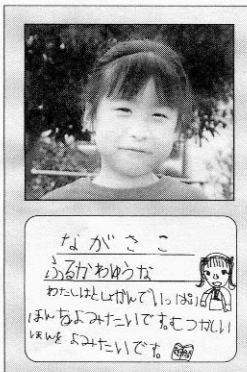 ながさこ
ふるかわゆうな
わたしはとしょかんでいっぱい
ほんをよみたいです。むつかしい
ほんを よみたいです。